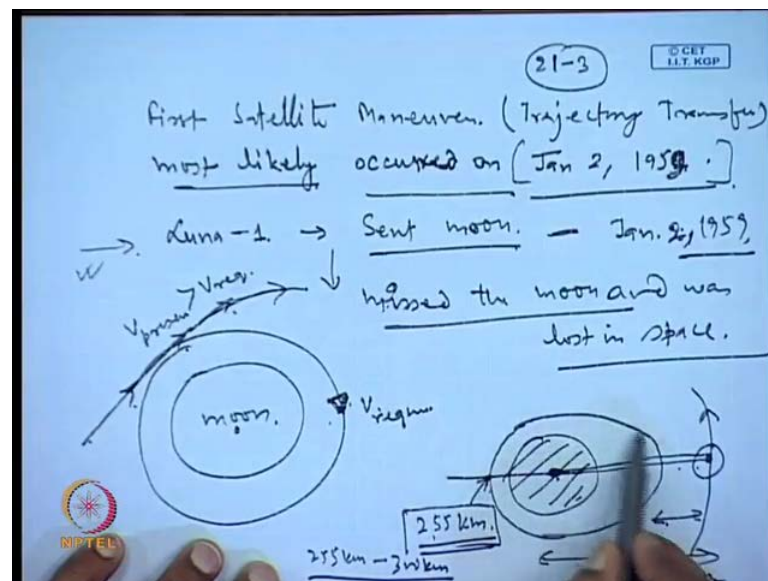 21-3
© CET
I.I.T. KGP
First Satellite Maneuver. (Trajectory Transfer)
most likely occurred on [Jan 2, 1959.]
Luna-1. → Sent moon. - Jan. 2, 1959,
missed the moon and was
lost in space.
Vpresent > Vreq.
moon.
Vreqm.
255 km.
255 km - 300 km
NPTEL